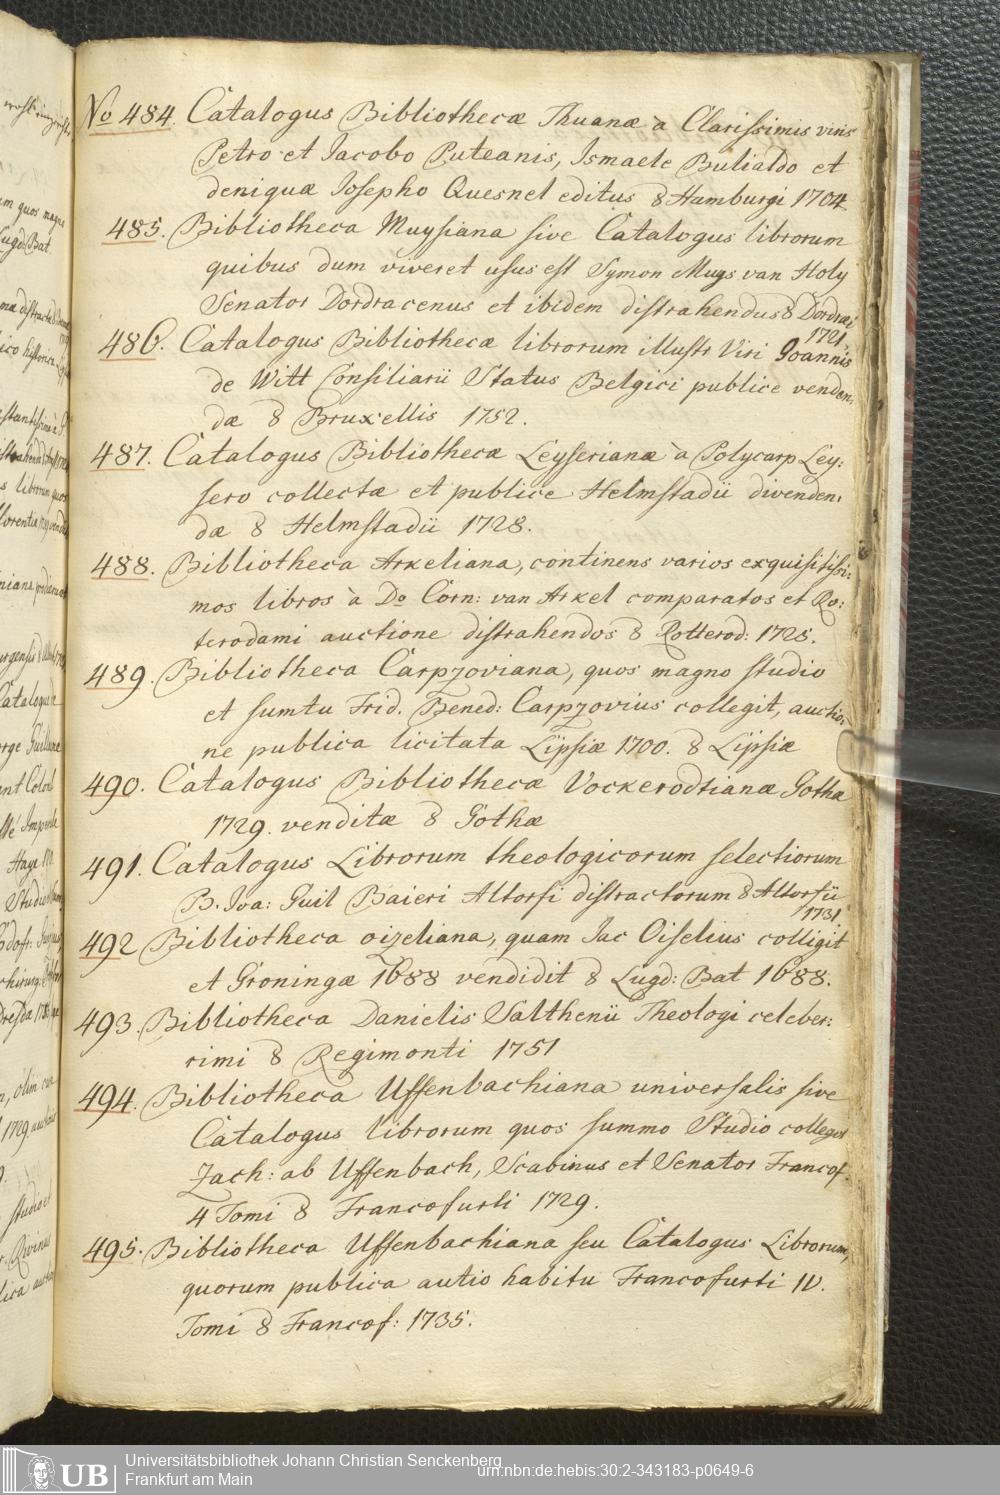 No 484. Catalogus Bibliothecæ Thuanæ à Clarissimis viris
Petro et Jacobo Puteanis, Ismaele Bulialdo et
deniquæ Josepho Quesnel editus 8 Hamburgi 1704
485. Bibliotheca Muysiana sive Catalogus librorum
quibus dum viveret usus est Symon Muys van Holy
Senator Dordracenus et ibidem distrahendus 8 Dordraci
1721.
486. Catalogus Bibliothecæ librorum illustr Viri Joannis
de Witt Consiliarii Status Belgici publice venden:
dæ 8 Bruxellis 1752.
487. Catalogus Bibliothecæ Leyserianæ à Polycarp Ley:
sero collectæ et publice Helmstadii divenden:
dæ 8 Helmstadii 1728.
488. Bibliotheca Arkeliana, continens varios exquisitissi:
mos libros à Do Corn: van Arkel comparatos et Ro:
terodami auctione distrahendos 8 Rotterod: 1725.
489. Bibliotheca Carpzoviana, quos magno studio
et sumtu Frid. Bened: Carpzovius collegit, auctio:
ne publica licitata Lipsiæ 1700. 8 Lipsiæ
490. Catalogus Bibliothecæ Vockerodtianæ Gothæ
1729. venditæ 8 Gothæ
491. Catalogus Librorum theologicorum selectiorum
B. Joa: Guil Baieri Altorfi distractorum 8 Altorfii
1731
492 Bibliotheca oizeliana, quam Jac Oiselius colligit
et Groningæ 1688 vendidit 8 Lugd: Bat 1688.
493. Bibliotheca Danielis Salthenii Theologi celeber:
rimi 8 Regimonti 1751
494. Bibliotheca Uffenbachiana universalis sive
Catalogus librorum quos summo Studio collegit
Zach: ab Uffenbach, Scabinus et Senator Francof.
4 Tomi 8 Francofurti 1729.
495. Bibliotheca Uffenbachiana seu Catalogus Librorum,
quorum publica autio habitu Francofurti IV.
Tomi 8 Francof: 1735.
UB
Universitätsbibliothek Johann Christian Senckenberg
Frankfurt am Main
urn:nbn:de:hebis:30:2-343183-p0649-6